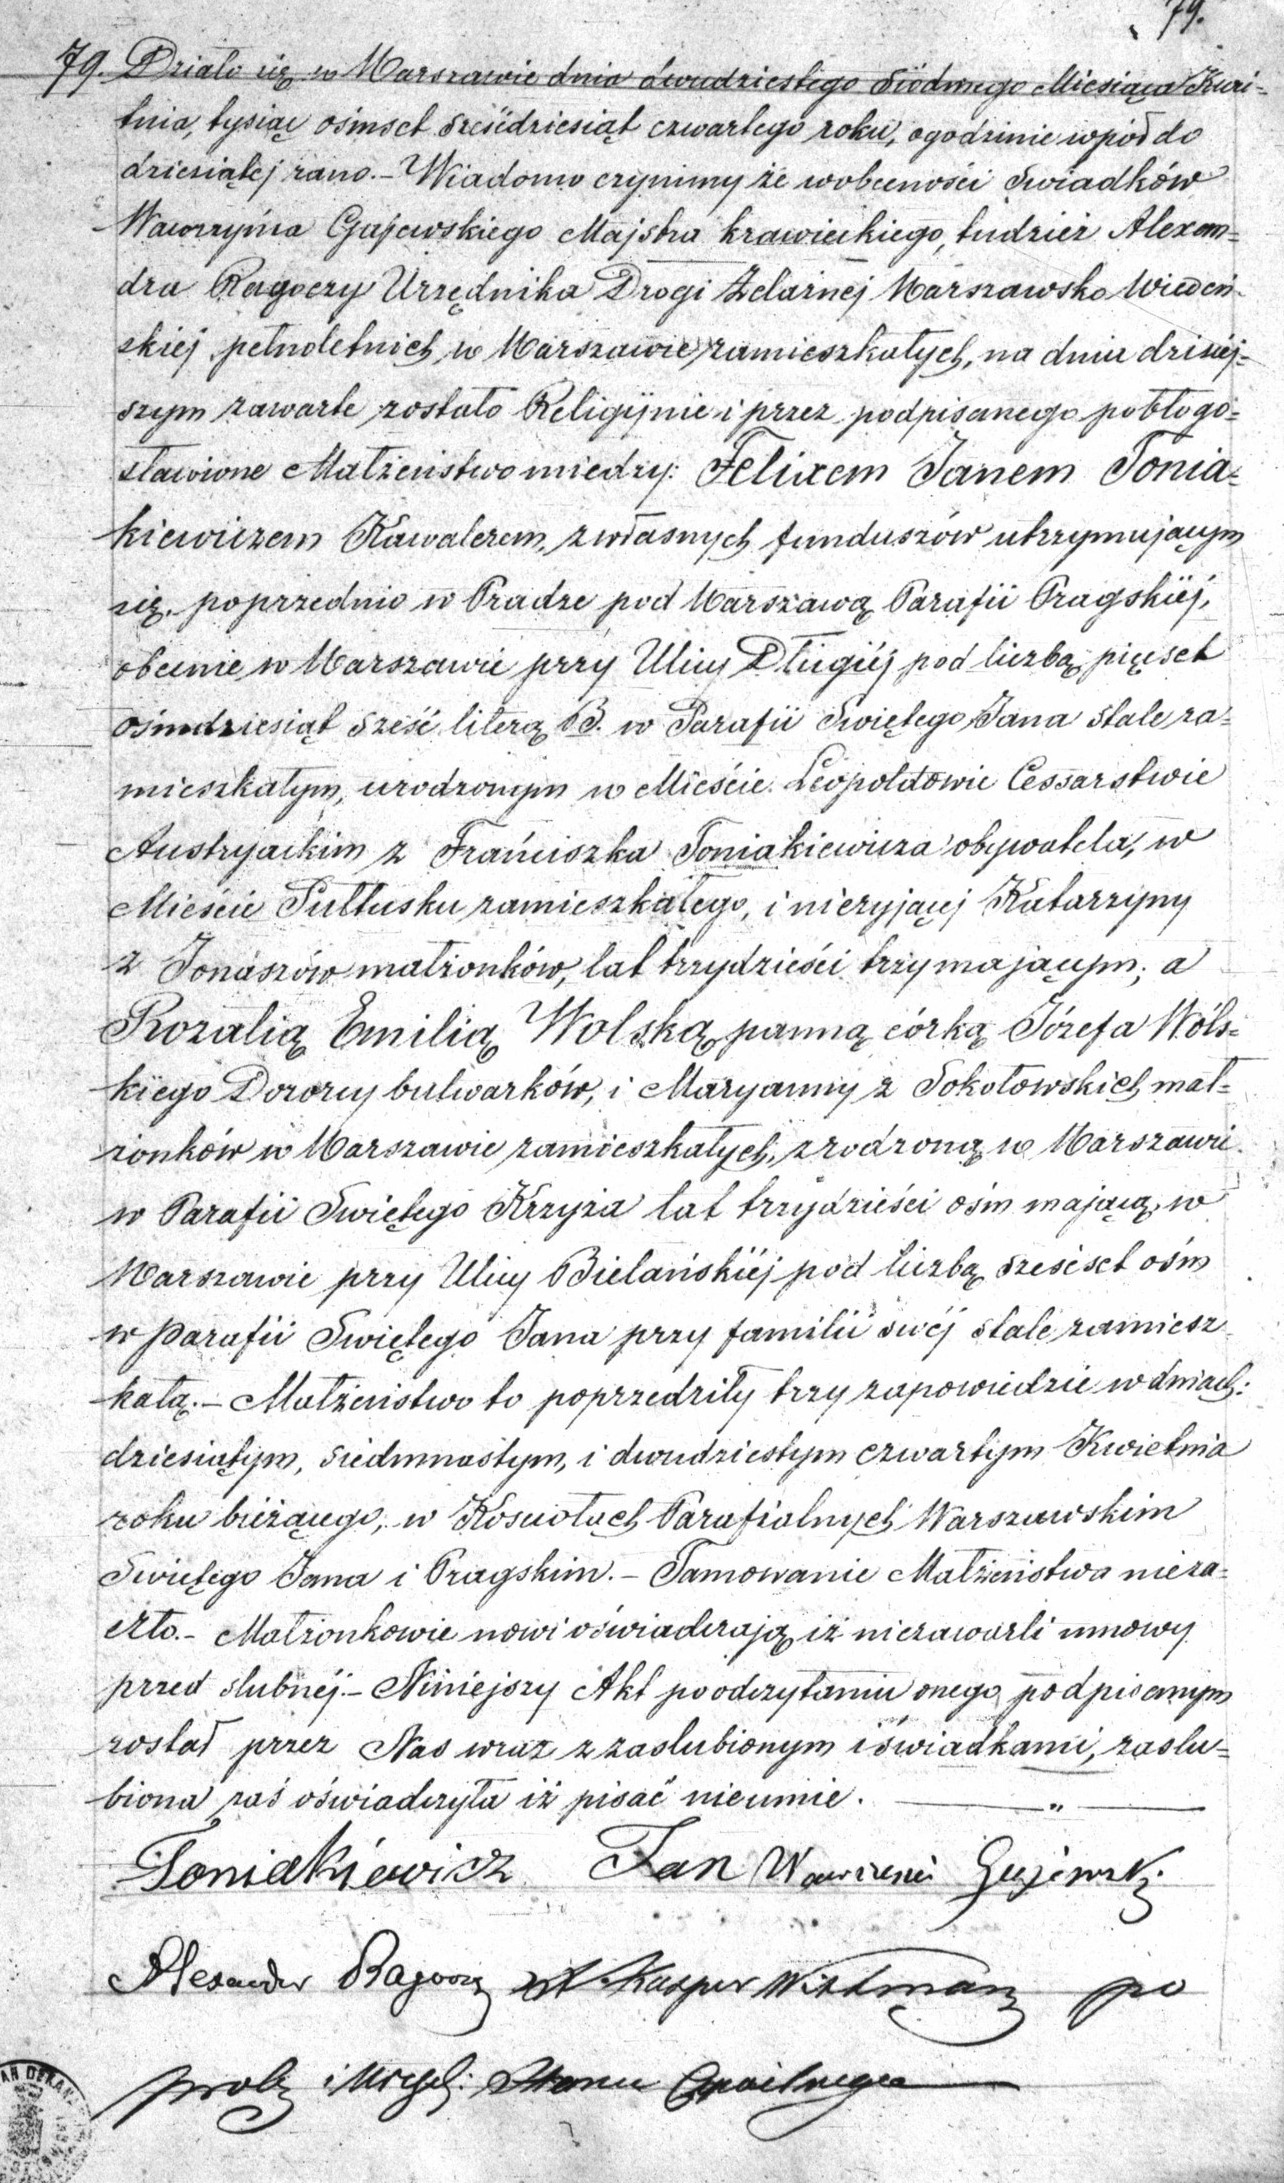 79.
79. Działo się w Warszawie dnia dwudziestego siódmego Miesiąca Kwie=
tnia, tysiąc ośmset sześćdziesiąt czwartego roku, o godzinie wpół do
dziesiątej rano.– Wiadomo czynimy że w obecności Swiadków
Wawrzyńca Gajewskiego Majstra krawieckiego, tudzież Alexan=
dra Ragoczy Urzędnika Drogi Żelaznej Warszawsko Wiedeń-
skiej, pełnoletnich, w Warszawie zamieszkałych, na dniu dzisiej=
szym zawarte zostało Religijnie i przez podpisanego pobłogo=
sławione Małżeństwo miedzy: Felixem Janem Tonia=
kiewiczem Kawalerem, z własnych funduszów utrzymującym
się, poprzednio w Pradze pod Warszawą Parafii Pragskiéj,
obecnie w Warszawie przy Ulicy Długiéj pod liczbą pięcset
ośmdziesiąt sześć literą B. w Parafii Swiętego Jana stale za=
mieszkałym, urodzonym w Mieście Leopoldowie Cessarstwie
Austryackim z Franciszka Toniakiewicza obywatela, w
Mieście Pułtusku zamieszkałego, i nieżyjącej Katarzyny
z Jonaszów małżonków, lat trzydzieści trzy mającym; a
Rozalią Emilią Wolską, panną córką Józefa Wóls=
kiego Dozorcy bulwarków, i Maryanny z Sokołowskich mał=
żonków w Warszawie zamieszkałych, zrodzoną w Warszawie
w Parafii Swiętego Krzyża lat trzydzieści ośm mającą, w
Warszawie przy Ulicy Bielańskiéj pod liczbą sześćset ośm
w Parafii Swiętego Jana przy familii swéj stale zamiesz
kałą.– Małżeństwo to poprzedziły trzy zapowiedzie w dniach:
dziesiątym, siedmnastym, i dwudziestym czwartym Kwietnia
roku bieżącego, w Kosciołach Parafialnych Warszawskim
Swiętego Jana i Pragskim.– Tamowanie Małżeństwa nieza=
szło.– Małżonkowie nowi oświadczają iż niezawarli umowy
przed slubnéj.– Niniejszy Akt po odczytaniu onego podpisanym
został przez Nas wraz z zaslubionym i świadkami, zaslu=
biona zaś oświadczyła iż pisać nieumie.
Toniakiewicz Jan Wawrzeniec Gajewski
Alexander Ragoczy Kasper Wistman po
prob